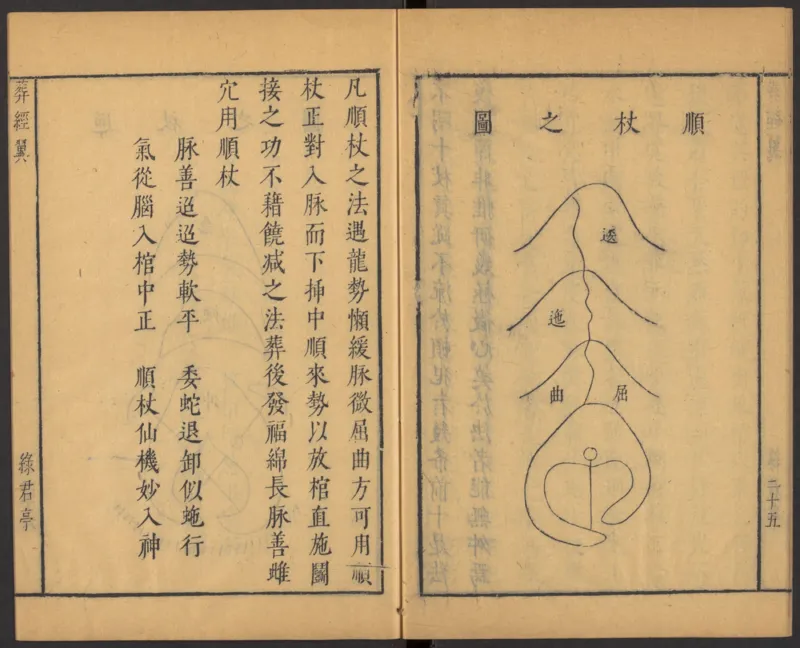 二十五
順杖之圖
逶
迤
屈曲
凡順杖之法遇龍勢懶緩脉微屈曲方可用順
杖正對入脉而下揷中順來勢以放棺直施鬬
接之功不藉饒减之法葬後發福綿長脉善雌
穴用順杖
脉善迢迢勢軟平　委蛇退卸似虵行
氣從腦入棺中正　順杖仙機妙入神
葬經翼
綠君亭